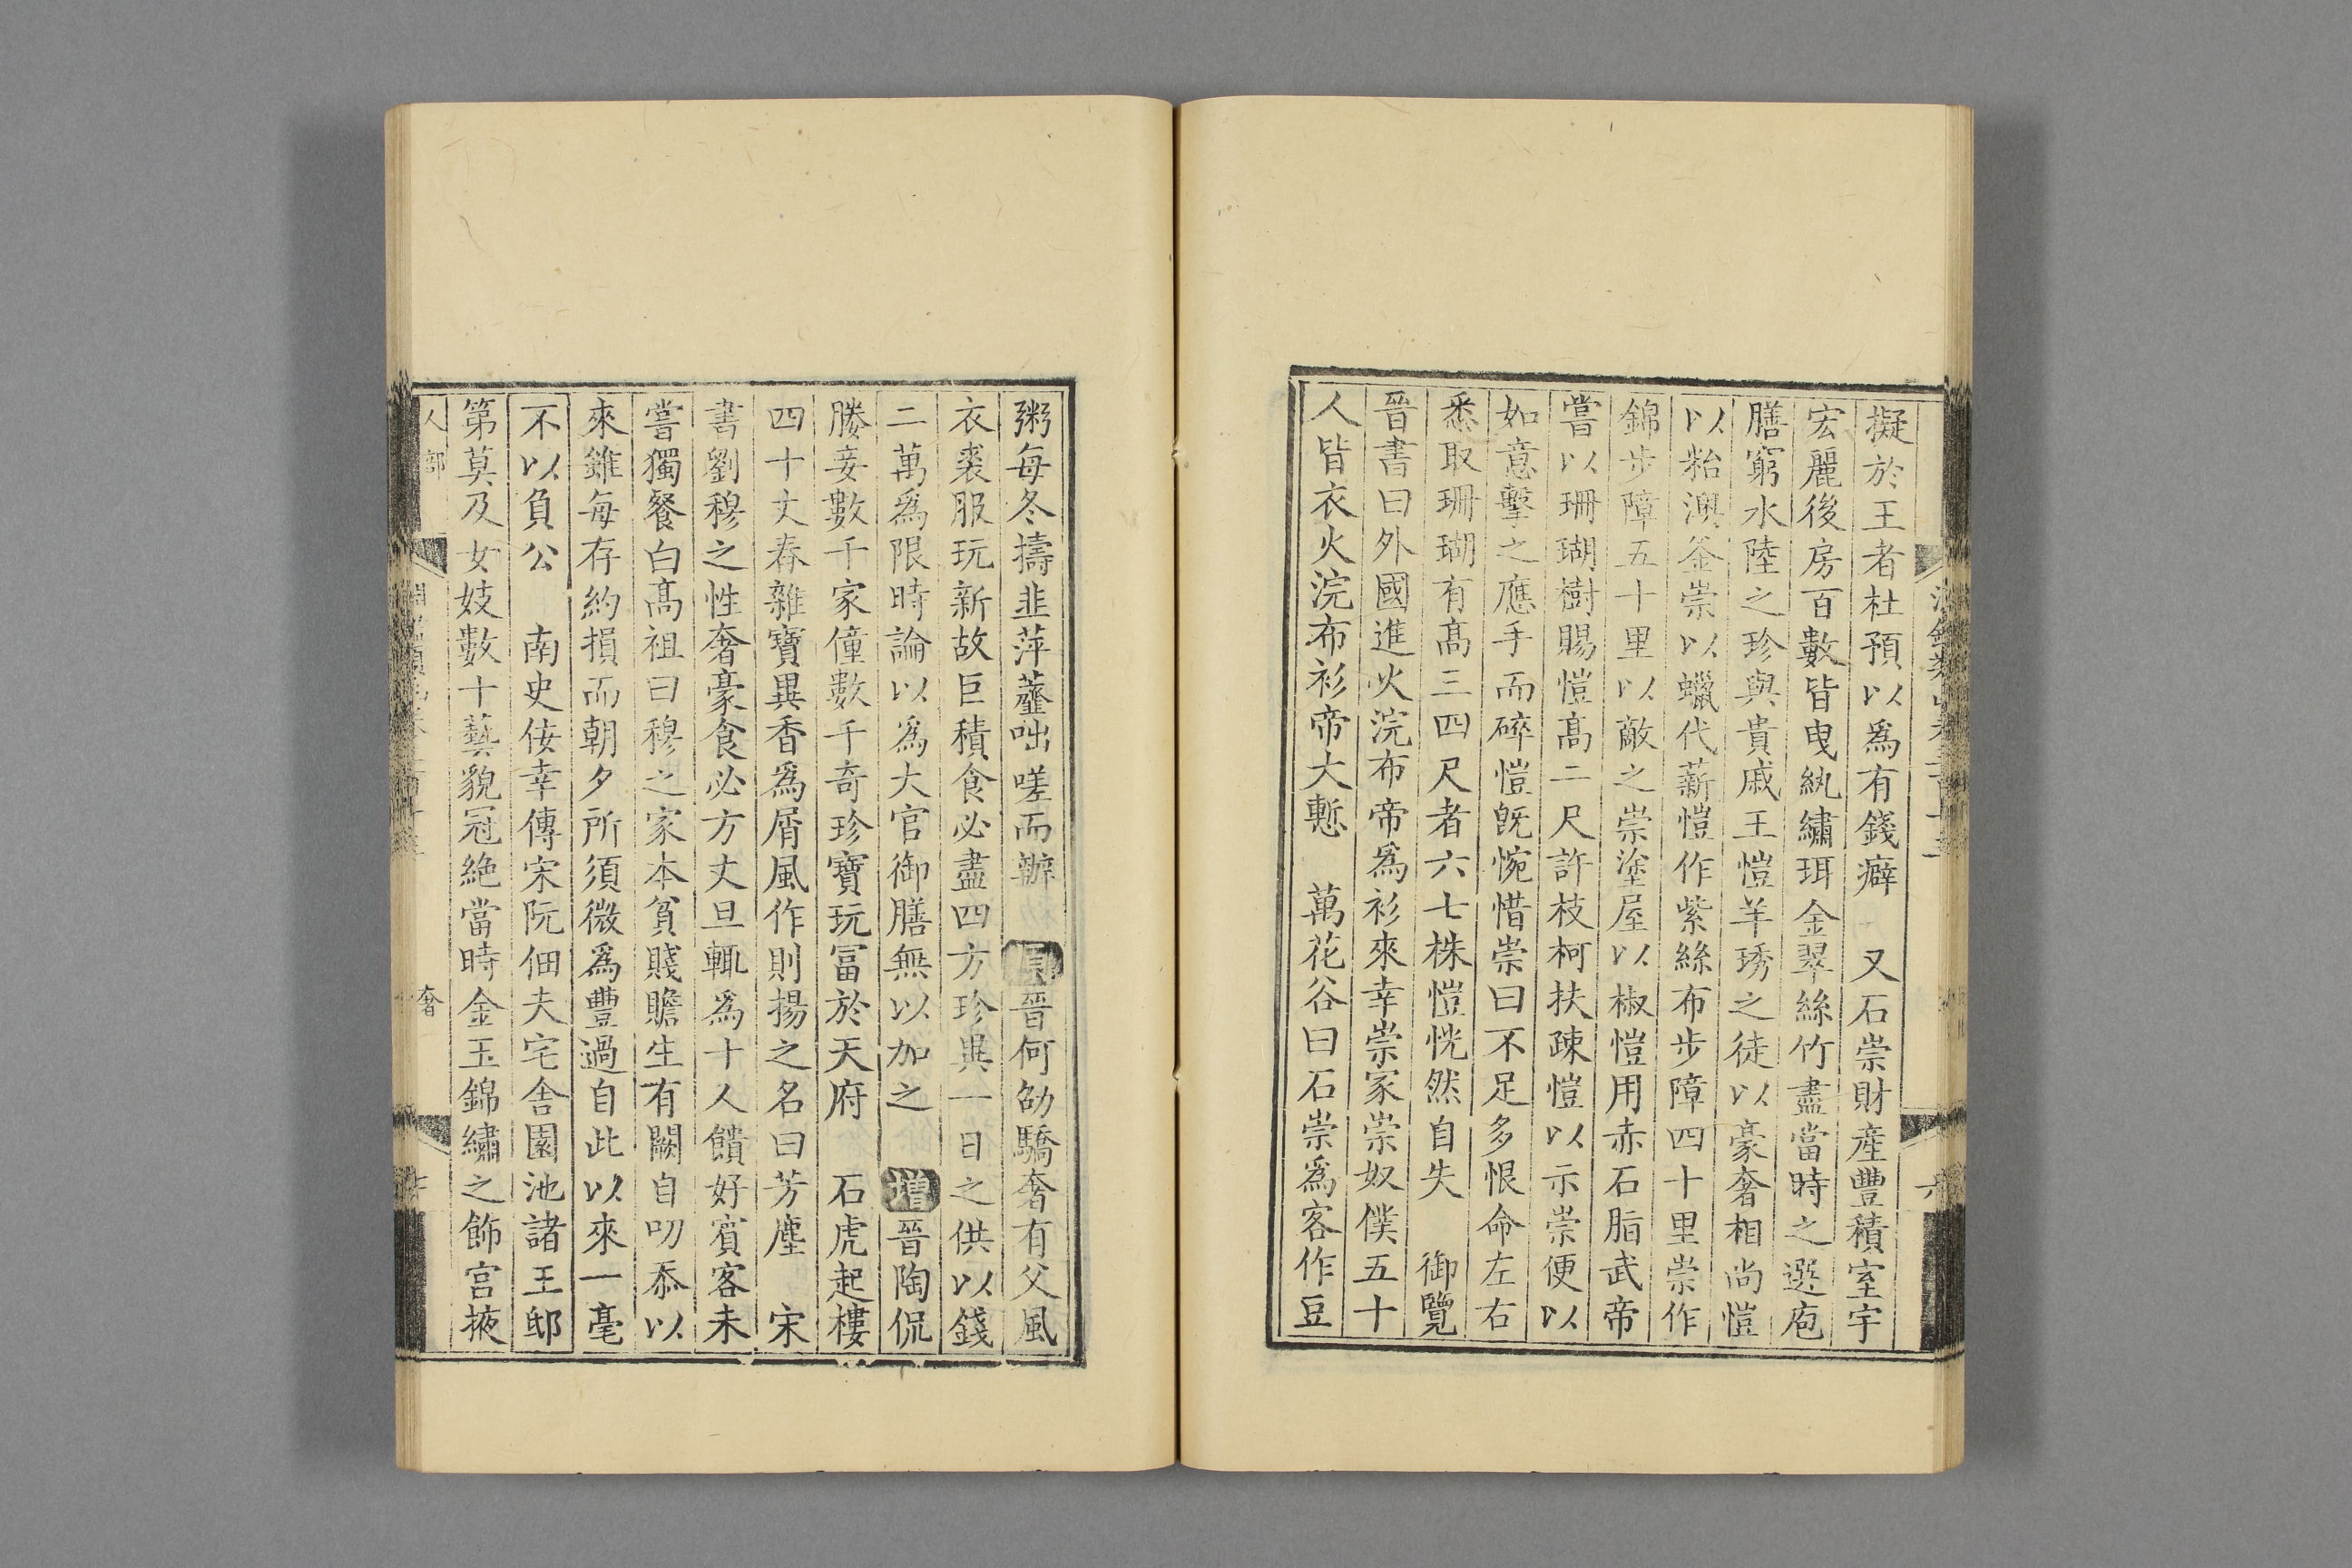 擬於王者杜預以爲有錢癖　又石崇財產豐積室宇
宏麗後房百數皆曳紈繡珥金翠絲竹盡當時之選庖
膳窮水陸之珍與貴戚王愷羊琇之徒以豪奢相尚愷
以粘澳釜崇以蠟代薪愷作紫絲布步障四十里崇作
錦步障五十里以敵之崇塗屋以椒愷用赤石脂武帝
嘗以珊瑚樹賜愷高二尺許枝柯扶疎愷以示崇便以
如意擊之應手而碎愷旣惋惜崇曰不足多恨命左右
悉取珊瑚有高三四尺者六七株愷恍然自失　御覽
晉書曰外國進火浣布帝爲衫來幸崇家崇奴僕五十
人皆衣火浣布衫帝大慙　萬花谷曰石崇爲客作豆
粥每冬擣韭萍虀咄嗟而辦　原晉何劭驕奢有父風
衣裘服玩新故巨積食必盡四方珍異一日之供以錢
二萬爲限時論以爲大官御膳無以加之　增晉陶侃
媵妾數千家僮數千奇珍寶玩冨於天府　石虎起樓
四十丈舂雜寶異香爲屑風作則揚之名曰芳塵　宋
書劉穆之性奢豪食必方丈旦輒爲十人饋好賓客未
嘗獨餐白高祖曰穆之家本貧賤贍生有闕自叨忝以
來雖每存約損而朝夕所須微爲豐過自此以來一毫
不以負公　南史佞幸傳宋阮佃夫宅舍園池諸王邸
第莫及女妓數十藝貌冠絶當時金玉錦繡之飾宫掖
人部
奢